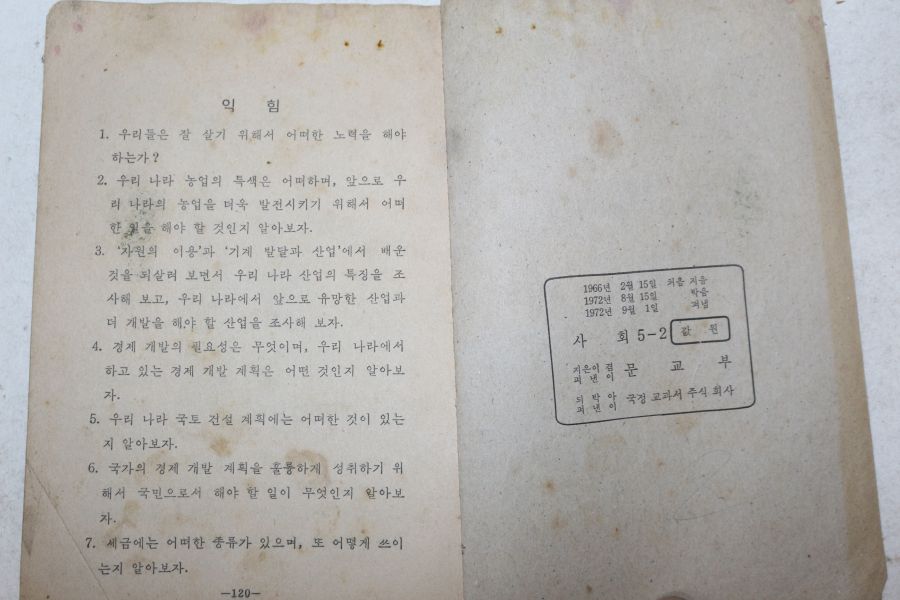 익 힘
1. 우리들은 잘 살기 위해서 어떠한 노력을 해야
하는가?
2. 우리 나라 농업의 특색은 어떠하며, 앞으로 우
리 나라의 농업을 더욱 발전시키기 위해서 어떠
한 일을 해야 할 것인지 알아보자.
3. ‘자원의 이용’과 ‘기계 발달과 산업’에서 배운
것을 되살려 보면서 우리 나라 산업의 특징을 조
사해 보고, 우리 나라에서 앞으로 유망한 산업과
더 개발을 해야 할 산업을 조사해 보자.
4. 경제 개발의 필요성은 무엇이며, 우리 나라에서
하고 있는 경제 개발 계획은 어떤 것인지 알아보
자.
5. 우리 나라 국토 건설 계획에는 어떠한 것이 있는
지 알아보자.
6. 국가의 경제 개발 계획을 훌륭하게 성취하기 위
해서 국민으로서 해야 할 일이 무엇인지 알아보
자.
7. 세금에는 어떠한 종류가 있으며, 또 어떻게 쓰이
는지 알아보자.
—120—
1966년 2월 15일 처음 지음
1972년 8월 15일 박음
1972년 9월 1일 펴냄
사 회 5-2 값 원
지은이 겸
펴 낸 이 문 교 부
되 박 아
펴 낸 이 국정 교과서 주식 회사